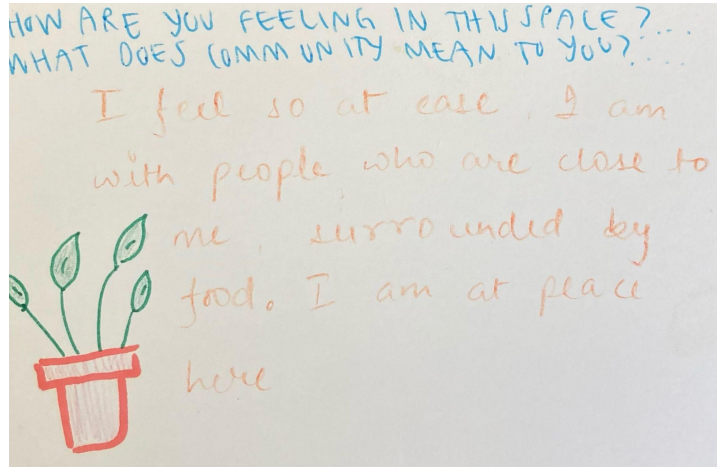 HOW ARE YOU FEELING IN THIS SPACE?...
WHAT DOES COMMUNITY MEAN TO YOU?....
I feel so at ease, I am
with people who are close to
me, surrounded by
food. I am at peace
here